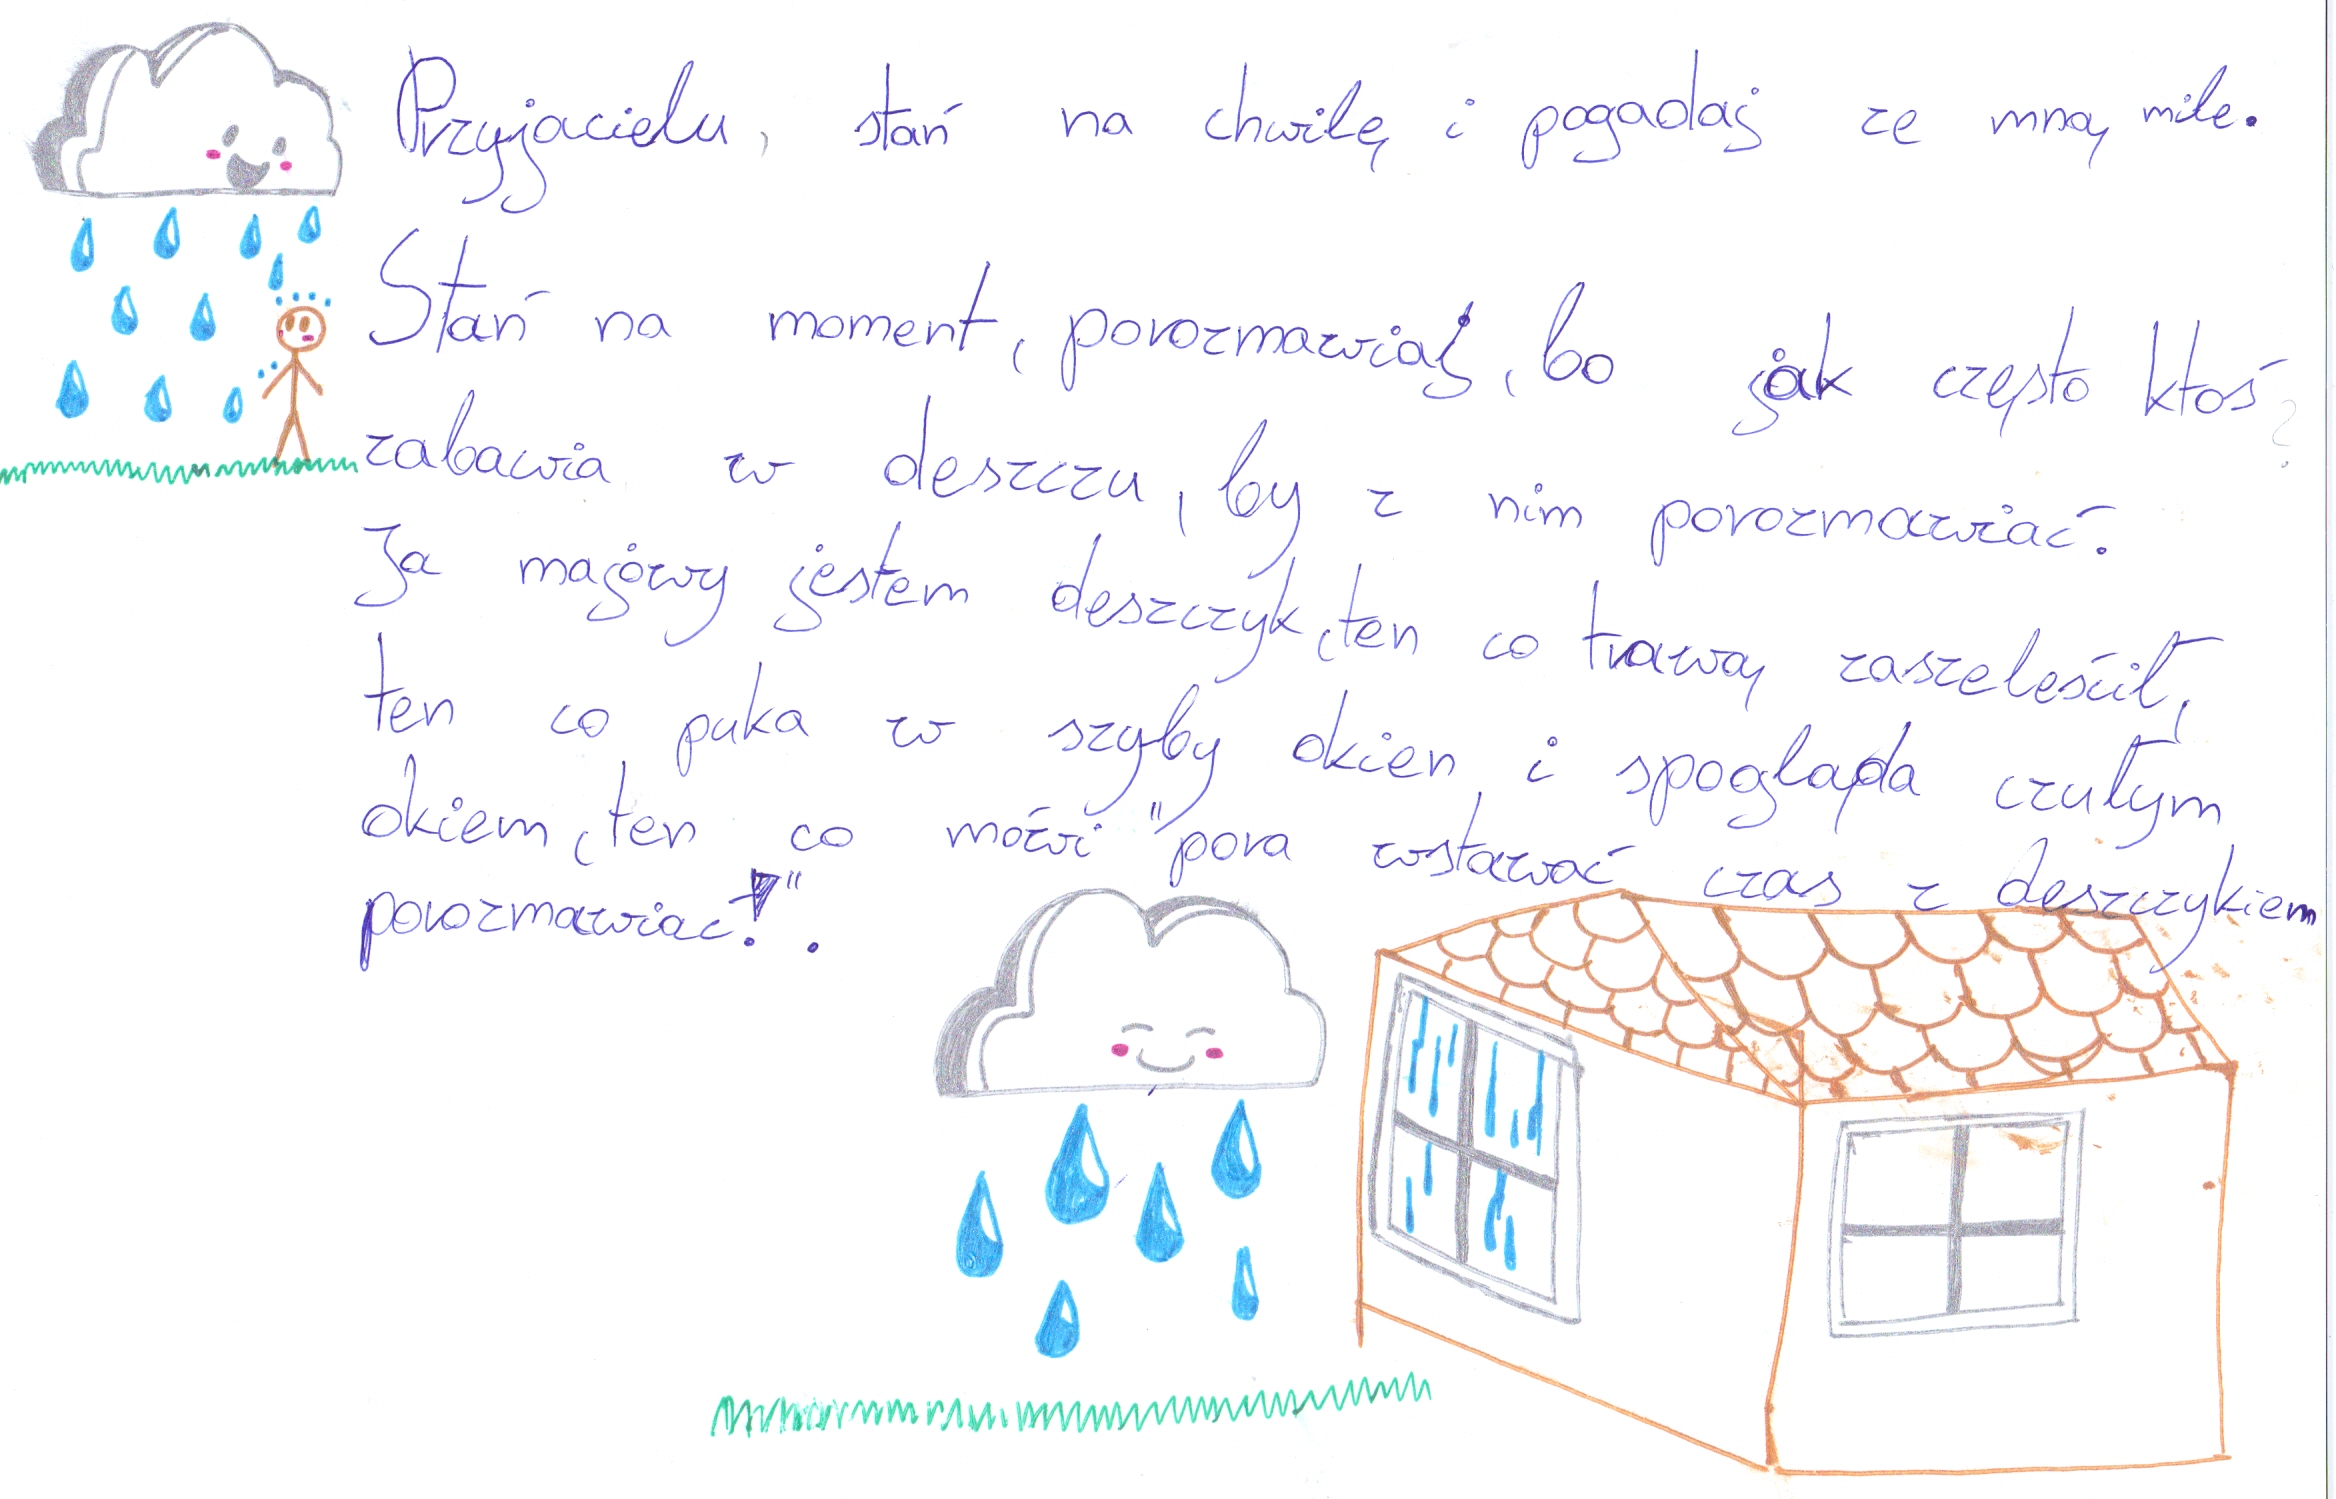 Przyjacielu, stań na chwilę i pogadaj ze mną miłe.
Stań na moment, porozmawiaj, bo jak często ktoś
zabawia w deszczu, by z nim porozmawiać?
Ja majówy jestem deszczyk, ten co trawą zaszeleścił,
ten co puka w szyby okien i spogląda czułym
okiem, ten co mówi "pora wstawać czas z deszczykiem
porozmawiac!".